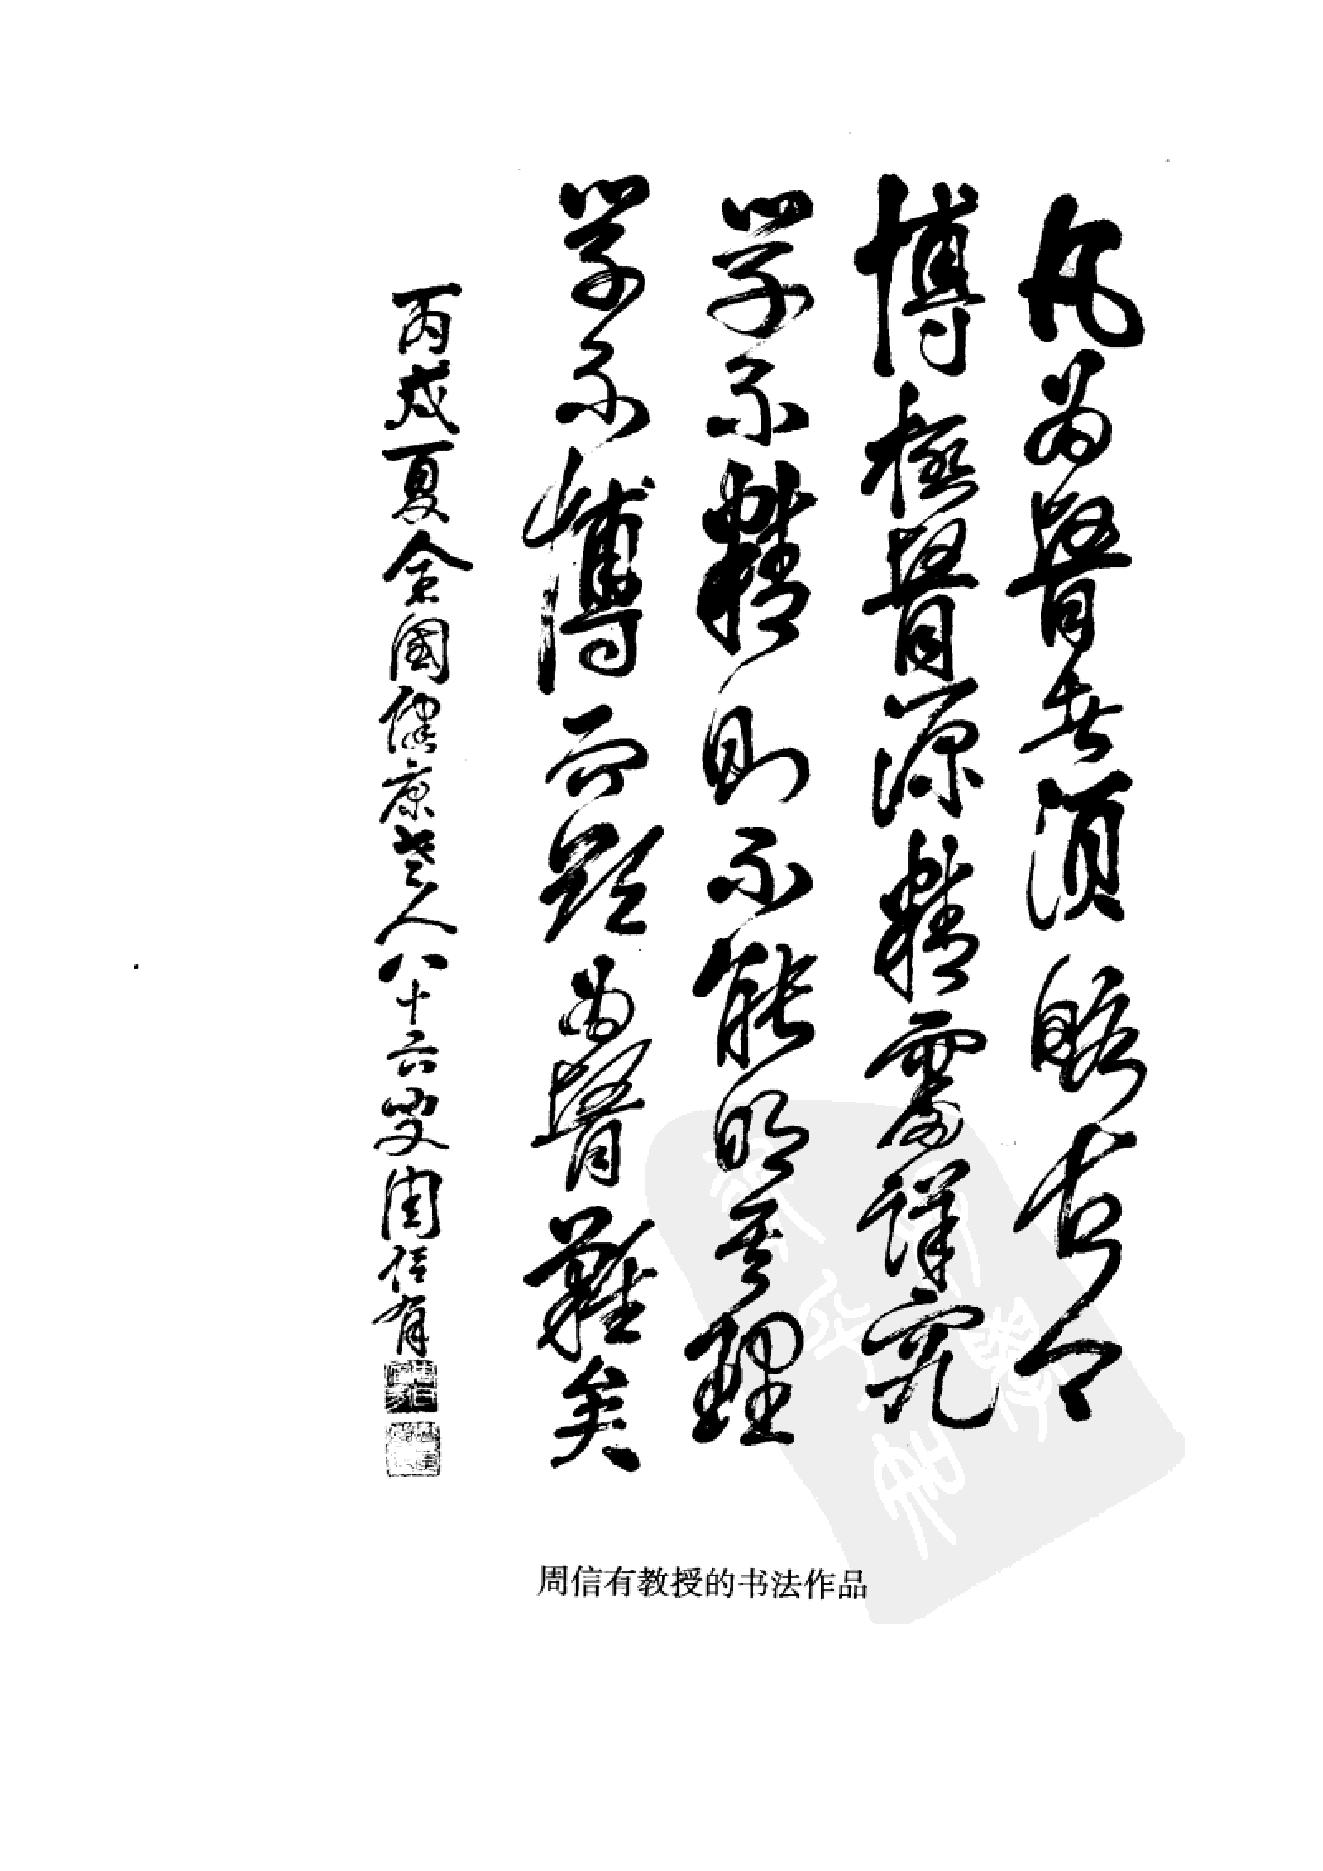 凡为医者须略古今
博极医源精灵详究
学不精则不能明其理
学不博而欲为医难矣
丙戌夏全国健康老人八十六叟周信有
周信有教授的书法作品